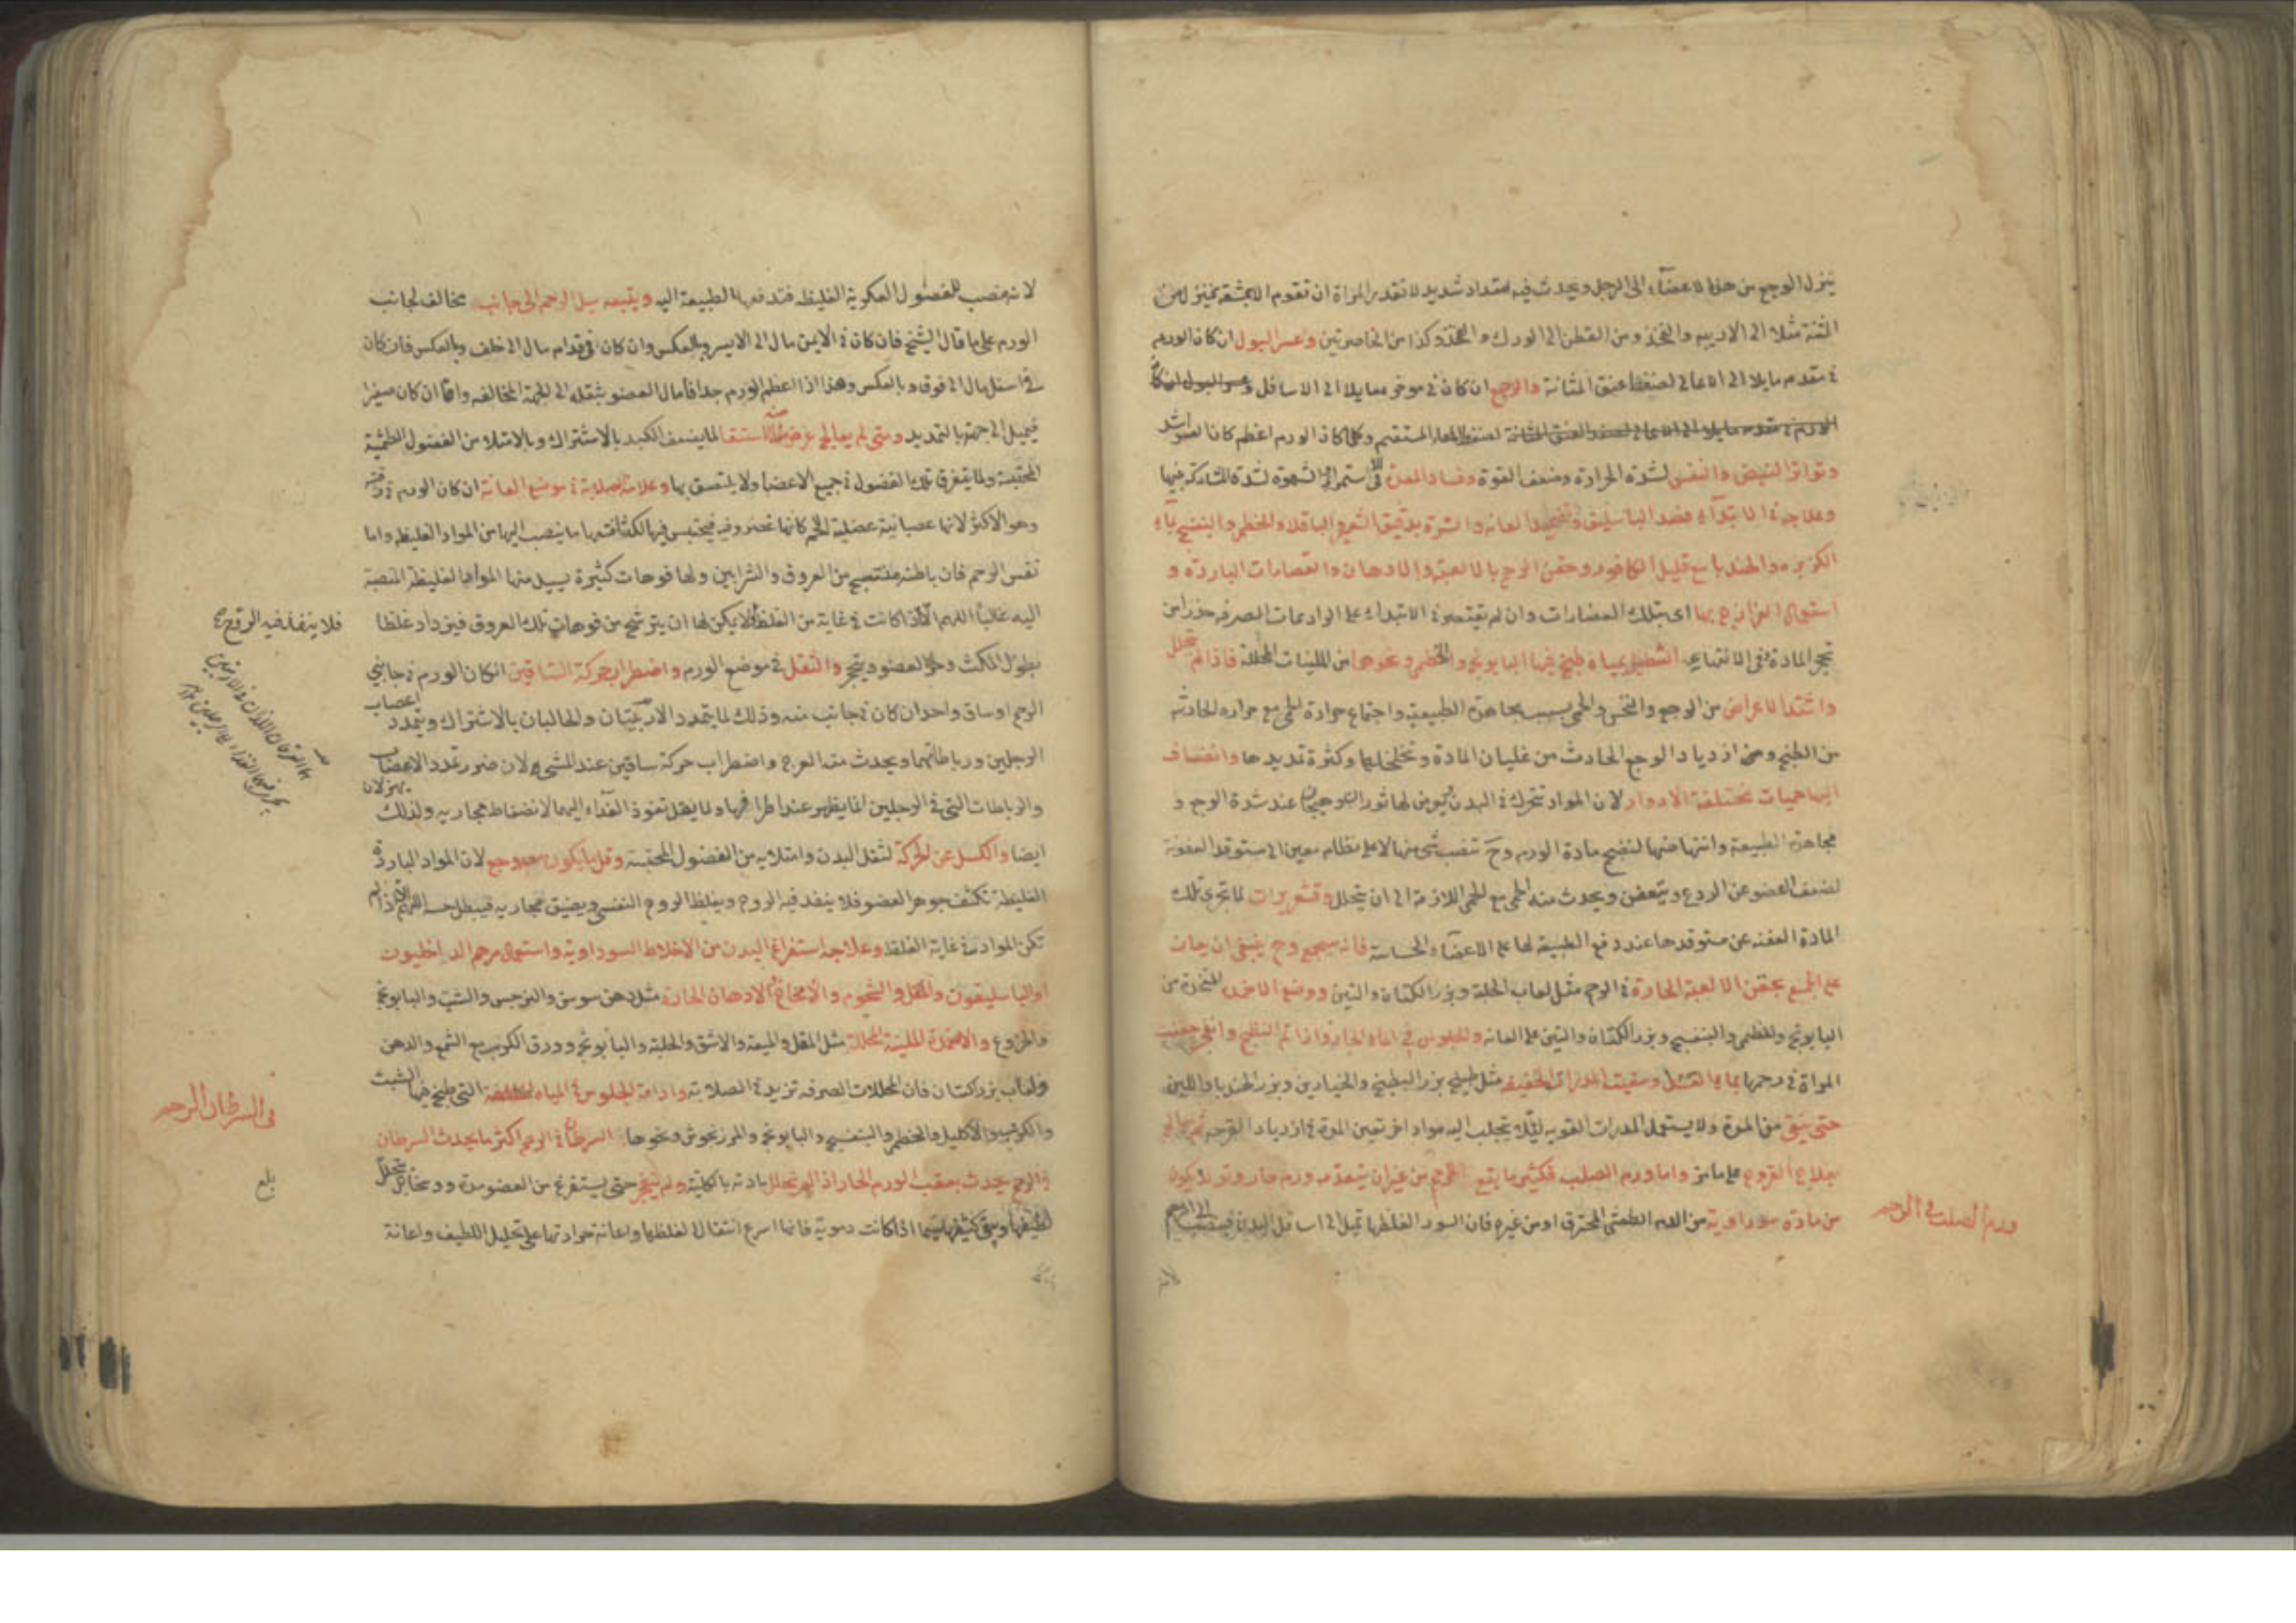 ينزل الوجع من هذه الاعضاء الى الرجل ويحدث فيه امتداد شديد لا تقدر المراة ان تقوم الا بمشقة فينزل من
الثنة مثلا الى الاربية والفخذ ومن القطن الى الورك والفخذ وكذا من الخاصرتين وعسر البول ان كان الورم
في مقدم مايلا الى الاعالي لضغط عنق المثانة والرجيع ان كان في موخر مايلا الى الاسافل
لضغط المعاء المستقيم وكلما كان الورم اعظم كان العسر اشد
وتواتر النبض والنفس لشدة الحرارة وضعف القوة وفساد المعدة في استمرائها الشهوة لشدة المشاركة بينهما
وعلاجه في الابتداء فصد الباسليق وتضميد العانه والسرة بدقيق الشعير والباقلا والخطمي والبنفسج بماء
الكزبره والهندبا مع قليل الكافور وحقن الرحم بالالعبة والادهان والعصارات البارده و
استعمال الفرازج بها اي بتلك العصارات وان لم يقتصر في الابتداء على الرادعات الصرفه حذرا من
تحجر المادة وفي الانتهاء التنطيل بمياه طبخ فيها البابونج والخطمي ونحوهما من الملينات المحللة فاذا لم يتحلل
واشتد الاعراض من الوجع والنخس والحمى بسبب مجاهدة الطبيعة واجتماع حرارة الحمى مع حراره الحادثه
من الطبخ ومن ازدياد الوجع الحادث من غليان المادة وتخلخلها وكثرة تمديدها وانضاف
اليها حميات مختلفة الادوار لان المواد تتحرك في البدن ويعرض لها ثوران وهيجان عند شدة الوجع و
مجاهدة الطبيعة وانتهاضها لنضج مادة الورم وح تنصب شي منها لا على نظام معين الى مستوقد العفونة
لضعف العضو عن الردع ويتعفن ويحدث منه الحمى مع الحمى اللازمة الى ان يتحلل وقشعريرات لما تجري تلك
المادة العفنه عن مستوقدها عند دفع الطبيعة لها على الاعضاء الحساسة فانه سيجمع وح ينبغي ان يعان
على الجمع بحقن الالعبة الحارة في الرحم مثل لعاب الحلبة وبزر الكتان والتين ووضع الاضمدة المتخذة من
البابونج والخطمي والبنفسج وبزر الكتان والتين على العانه والجلوس في الماء الحار واذا تم النضج وانفجر حقنت
المراة في رحمها بماء العسل وسقيت المدرات الخفيفه مثل بزر البطيخ والخيارين وبزر الهندبا باللبن
حتى ينقى من المدة ولا يستعمل المدرات القويه لئلا يجلب اليه مواد اخر تعين المدة في ازدياد القرحه ثم يعالج
بعلاج القروح على ما مر واما ورم الصلب فكثيرا ما يقع الرحم من غير ان يتقدمه ورم حار وقد يكون
من مادة سوداوية من الدم الطمثي المحترق او من غيره فان السوداء لغلظها تميل الى اسافل البدن
ورم الصلب في الرحم
لانه مصب للفضول العكرية الغليظه فتدفعها الطبيعة اليه ويتبعه ميل الرحم الى جانب مخالف لجانب
الورم على ما قال الشيخ فان كان في الايمن مال الى الايسر وبالعكس وان كان في قدام مال الى خلف وبالعكس فان كان
في اسفل مال الى فوق وبالعكس وهذا اذا عظم الورم جدا فامال العضو بثقله الى الجهة المخالفه واما ان كان صغيرا
فيميل الى جهته بالتمديد ومتى لم يعالج عرض منه الاستسقا لما يضعف الكبد بالاشتراك وبالامتلا من الفضول الطمثية
المحتبسة ولما يتفرق تلك الفضول في جميع الاعضا ولا يلتصق بها وعلامته صلابة في موضع العانة ان كان الورم في رقبته
وهو الاكثر لانها عصبانية عضلية اللحم كانها غضروفية فيحتبس فيها لكثافتها ما ينصب اليها من المواد الغليظه واما
نفس الرحم فان باطنه منتسج من العروق والشرايين ولها فوهات كثيرة يسيل منها المواد الغليظة المنصبة
اليه غالبا اللهم الا اذا كانت في غاية من الغلظ لا يمكن لها ان يترشح من فوهات تلك العروق فيزداد غلظا
بطول المكث وحر العضو ويتحجر والثقل في موضع الورم واضطراب حركة الساقين ان كان الورم في جانبي
الرحم او ساق واحد ان كان في جانب منه وذلك لما يتمدد الاربيتان والحالبان بالاشتراك ويتمدد اعصاب
الرجلين ورباطاتهما ويحدث منه العرج واضطراب حركة ساقين عند المشي لان ضرر تمدد الاعصاب
والرباطات التي في الرجلين انما يظهر عند اطرافها ولما يقل نفوذ الغذاء اليهما لانضغاط مجاريه ولذلك يهزلان
ايضا والكسل عن الحركة لثقل البدن وامتلايه من الفضول المحتبسة وقل ما يكون معه وجع لان المواد الباردة
الغليظة تكثف جوهر العضو فلا ينفذ فيه الروح ويغلظ الروح النفسي ويضيق مجاريه فيبطل حسه اللهم الا اذا لم
تكن المواد في غاية الغلظ وعلاجه استفراغ البدن من الاخلاط السوداوية واستعمال مرهم الداخليون
او الباسليقون والمقل والشحوم والامخاخ والادهان الحارة مثل دهن سوسن والنرجس والشبت والبابونج
والخروع والاضمدة الملينة المحللة مثل المقل والميعة والاشق والحلبة والبابونج وورق الكرنب مع الشمع والدهن
ولعاب بزر كتان فان المحللات الصرفه تزيد في الصلابة وادامة الجلوس في المياه التي طبخ فيها الشبت
والكرنب والاكليل والخطمي والبنفسج والبابونج والمرزنجوش ونحوها السرطان في الرحم اكثر ما يحدث السرطان
في الرحم يحدث بعقب الورم الحار اذا لم يتحلل مادته بالكلية ولم ينفجر حتى يستفرغ من العضو مدة ودما بل تحلل
لطيفها وبقي كثيفها سيما اذا كانت دموية فانها اسرع انتقالا لغلظها واعانة حرارتها على تحليل اللطيف واعانة
فلا ينفذ فيه الروح
في السرطان الرحم
بلغ